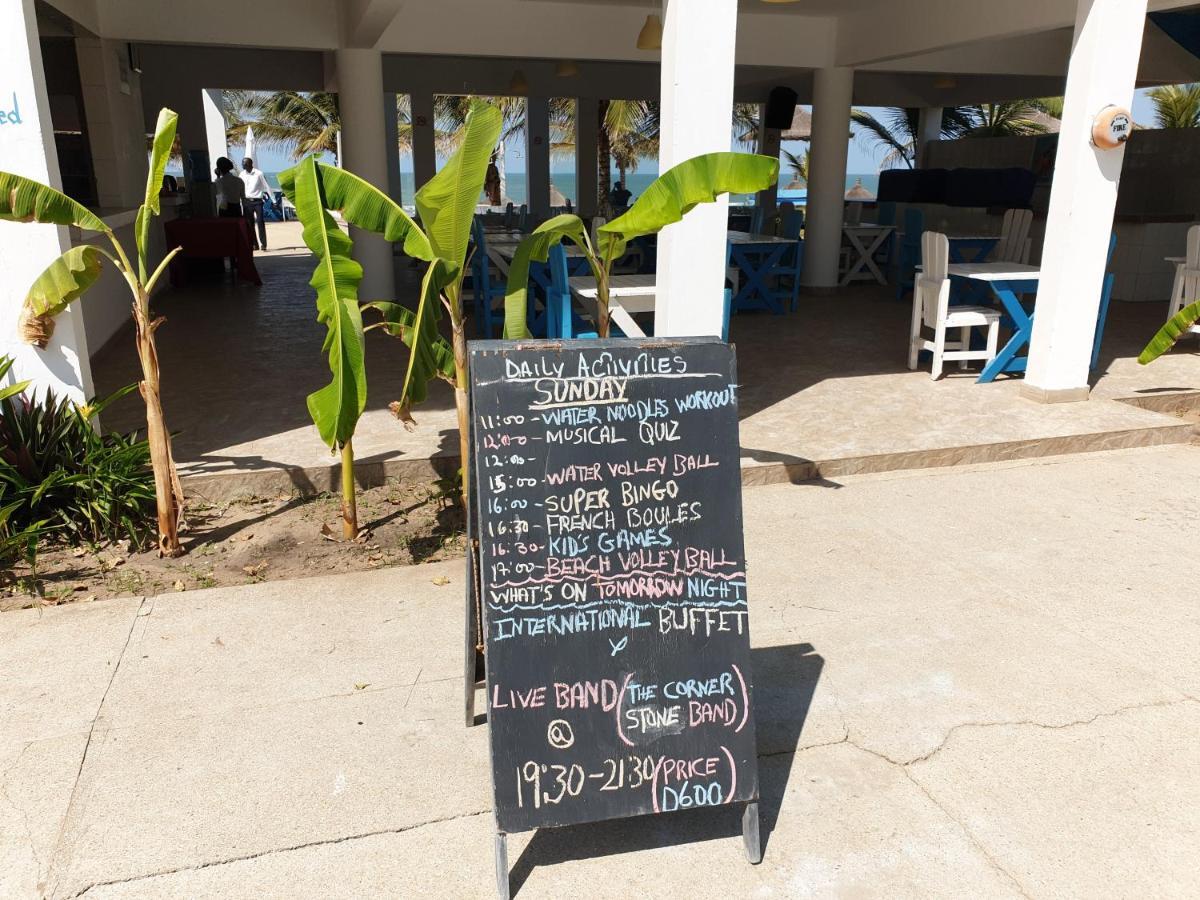 ed
FIRE
DAILY ACTIVITIES
SUNDAY
11:00-WATER NOODLES WORKOUT
12:00-MUSICAL QUIZ
12:00-
15:00-WATER VOLLEY BALL
16:00-SUPER BINGO
16:30-FRENCH BOULES
16:30-KID'S GAMES
17:00-BEACH VOLLEY BALL
WHAT'S ON TOMORROW NIGHT
INTERNATIONAL BUFFET
LIVE BAND (THE CORNER
STONE BAND)
@
19:30-21:30 (PRICE
D600)